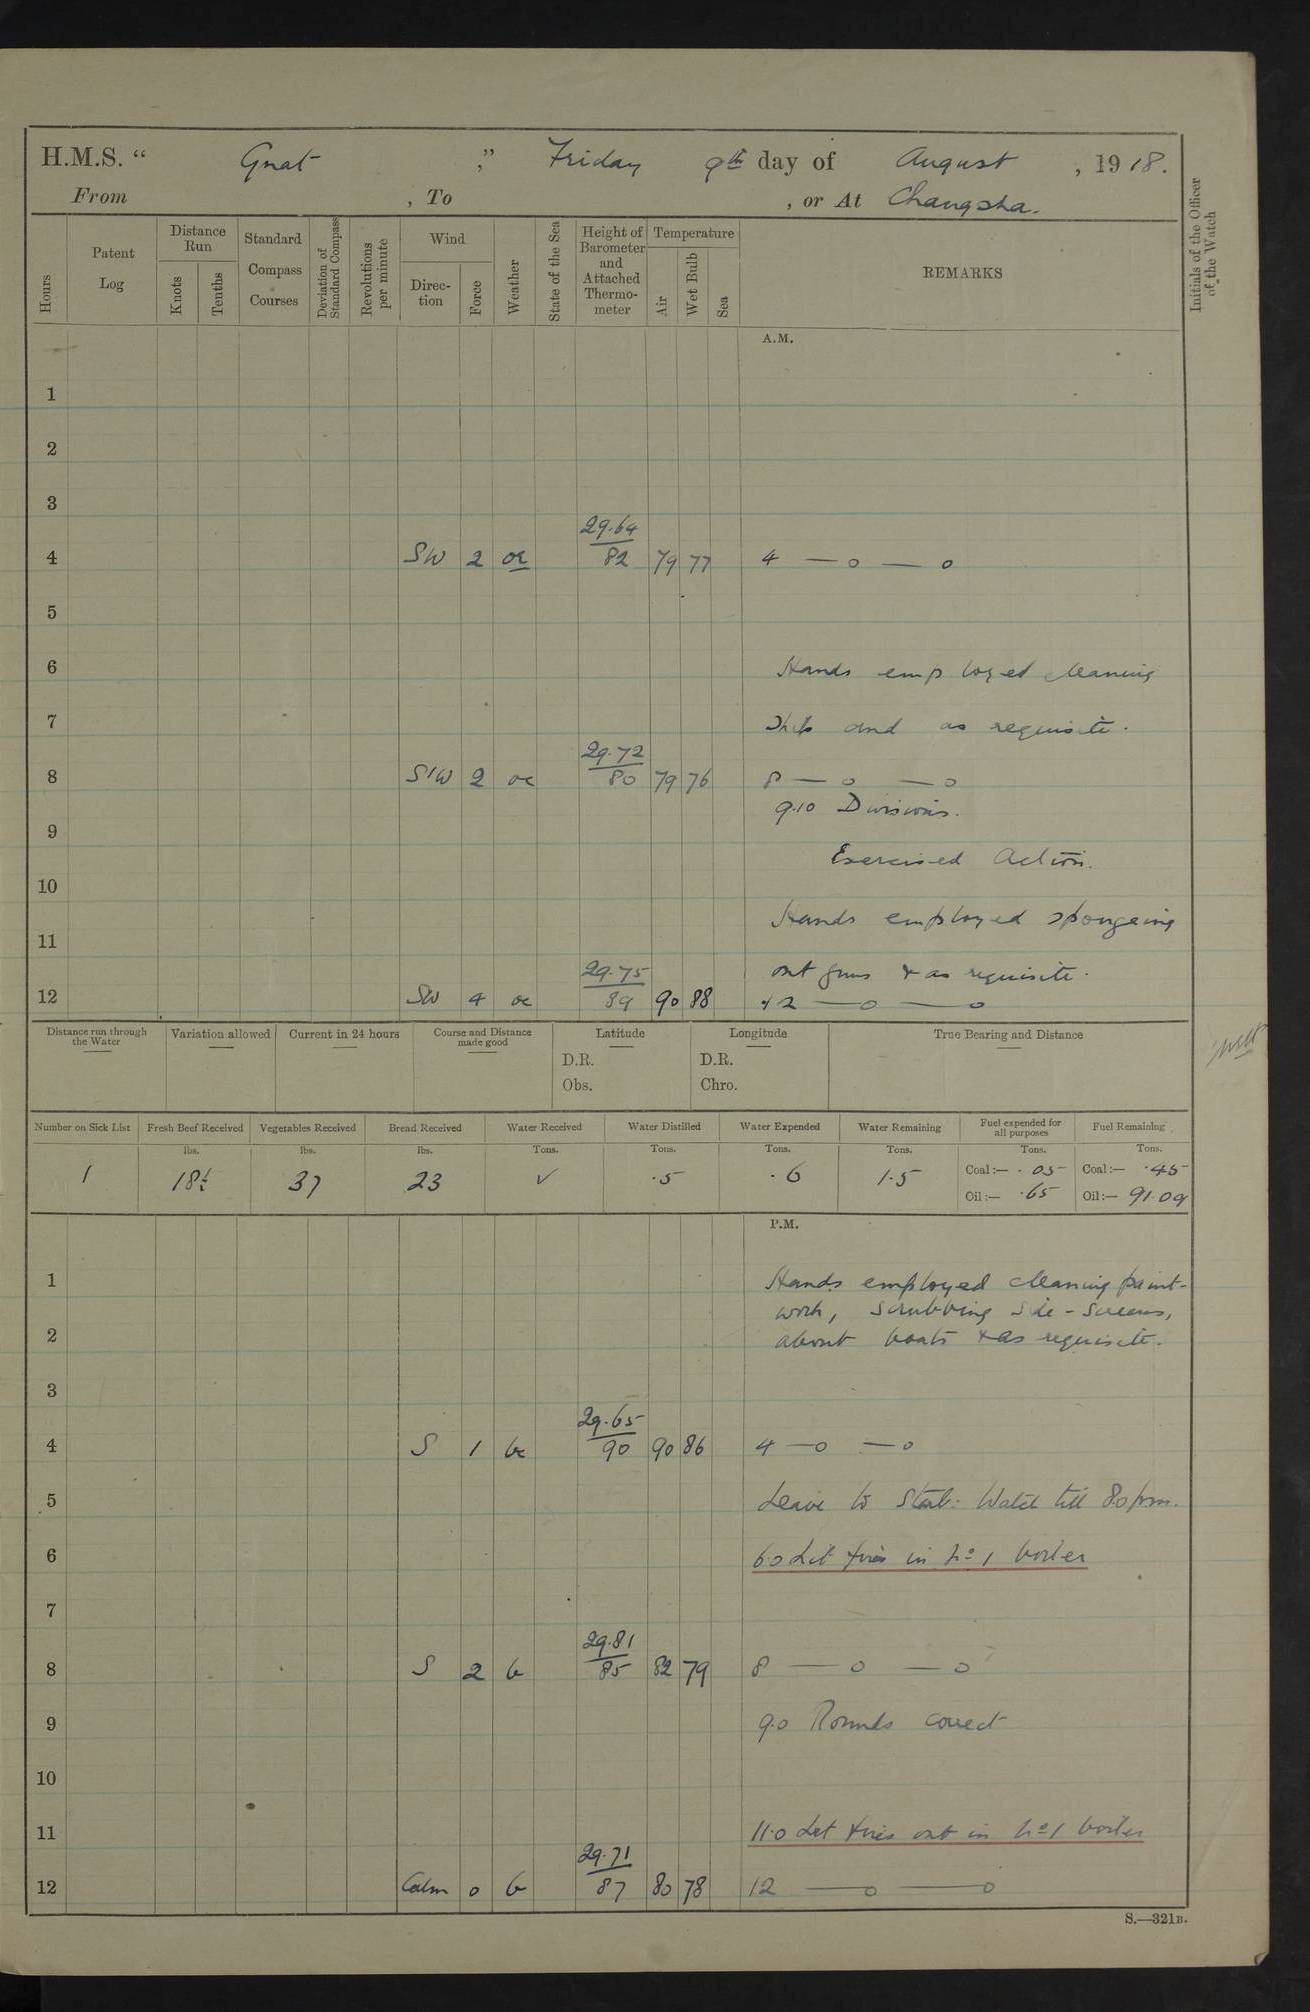 H.M.S. " Gnat ," Friday 9th day of August , 1918.
From , To , or At Changsha.
Hours Patent Log Distance Run Knots Tenths Standard Compass Courses Deviation of Standard Compass Revolutions per minute Wind Direc-tion Force Weather State of the Sea Height of Barometer and Attached Thermo-meter Temperature Air Wet Bulb Sea REMARKS Initials of the Officer of the Watch
A.M.
1
2
3
29.64
4 SW 2 oc 82 79 77 4 — o — o
5
6 Hands employed cleaning
7 Ship and as requisite.
29.72
8 SW 2 oc 80 79 76 8 — o — o
9.10 Divisions.
9
Exercised Action.
10
Hands employed spongeing
11
29.75 out guns & as requisite.
12 SW 4 oc 89 90 88 12 — o — o
Distance run through the Water Variation allowed Current in 24 hours Course and Distance made good Latitude Longitude True Bearing and Distance
D.R. D.R.
Obs. Chro.
Number on Sick List Fresh Beef Received Vegetables Received Bread Received Water Received Water Distilled Water Expended Water Remaining Fuel expended for all purposes Fuel Remaining
lbs. lbs. lbs. Tons. Tons. Tons. Tons. Tons. Tons.
1 18½ 37 23 ✓ .5 .6 1.5 Coal:— .05 Coal:— .45
Oil:— .65 Oil:— 91.09
P.M.
1 Hands employed cleaning paint-
work, scrubbing side-screens,
2 about boats & as requisite.
3
29.65
4 S 1 bc 90 90 86 4 — o — o
5 Leave to Starb: Watch till 8.0 pm.
6 6.0 Lit fires in No 1 boiler
7
29.81
8 S 2 b 85 82 79 8 — o — o
9 9.0 Rounds correct
10
11 11.0 Let fires out in No 1 boiler
29.71
12 Calm 0 b 87 80 78 12 — o — o
S.—321B.